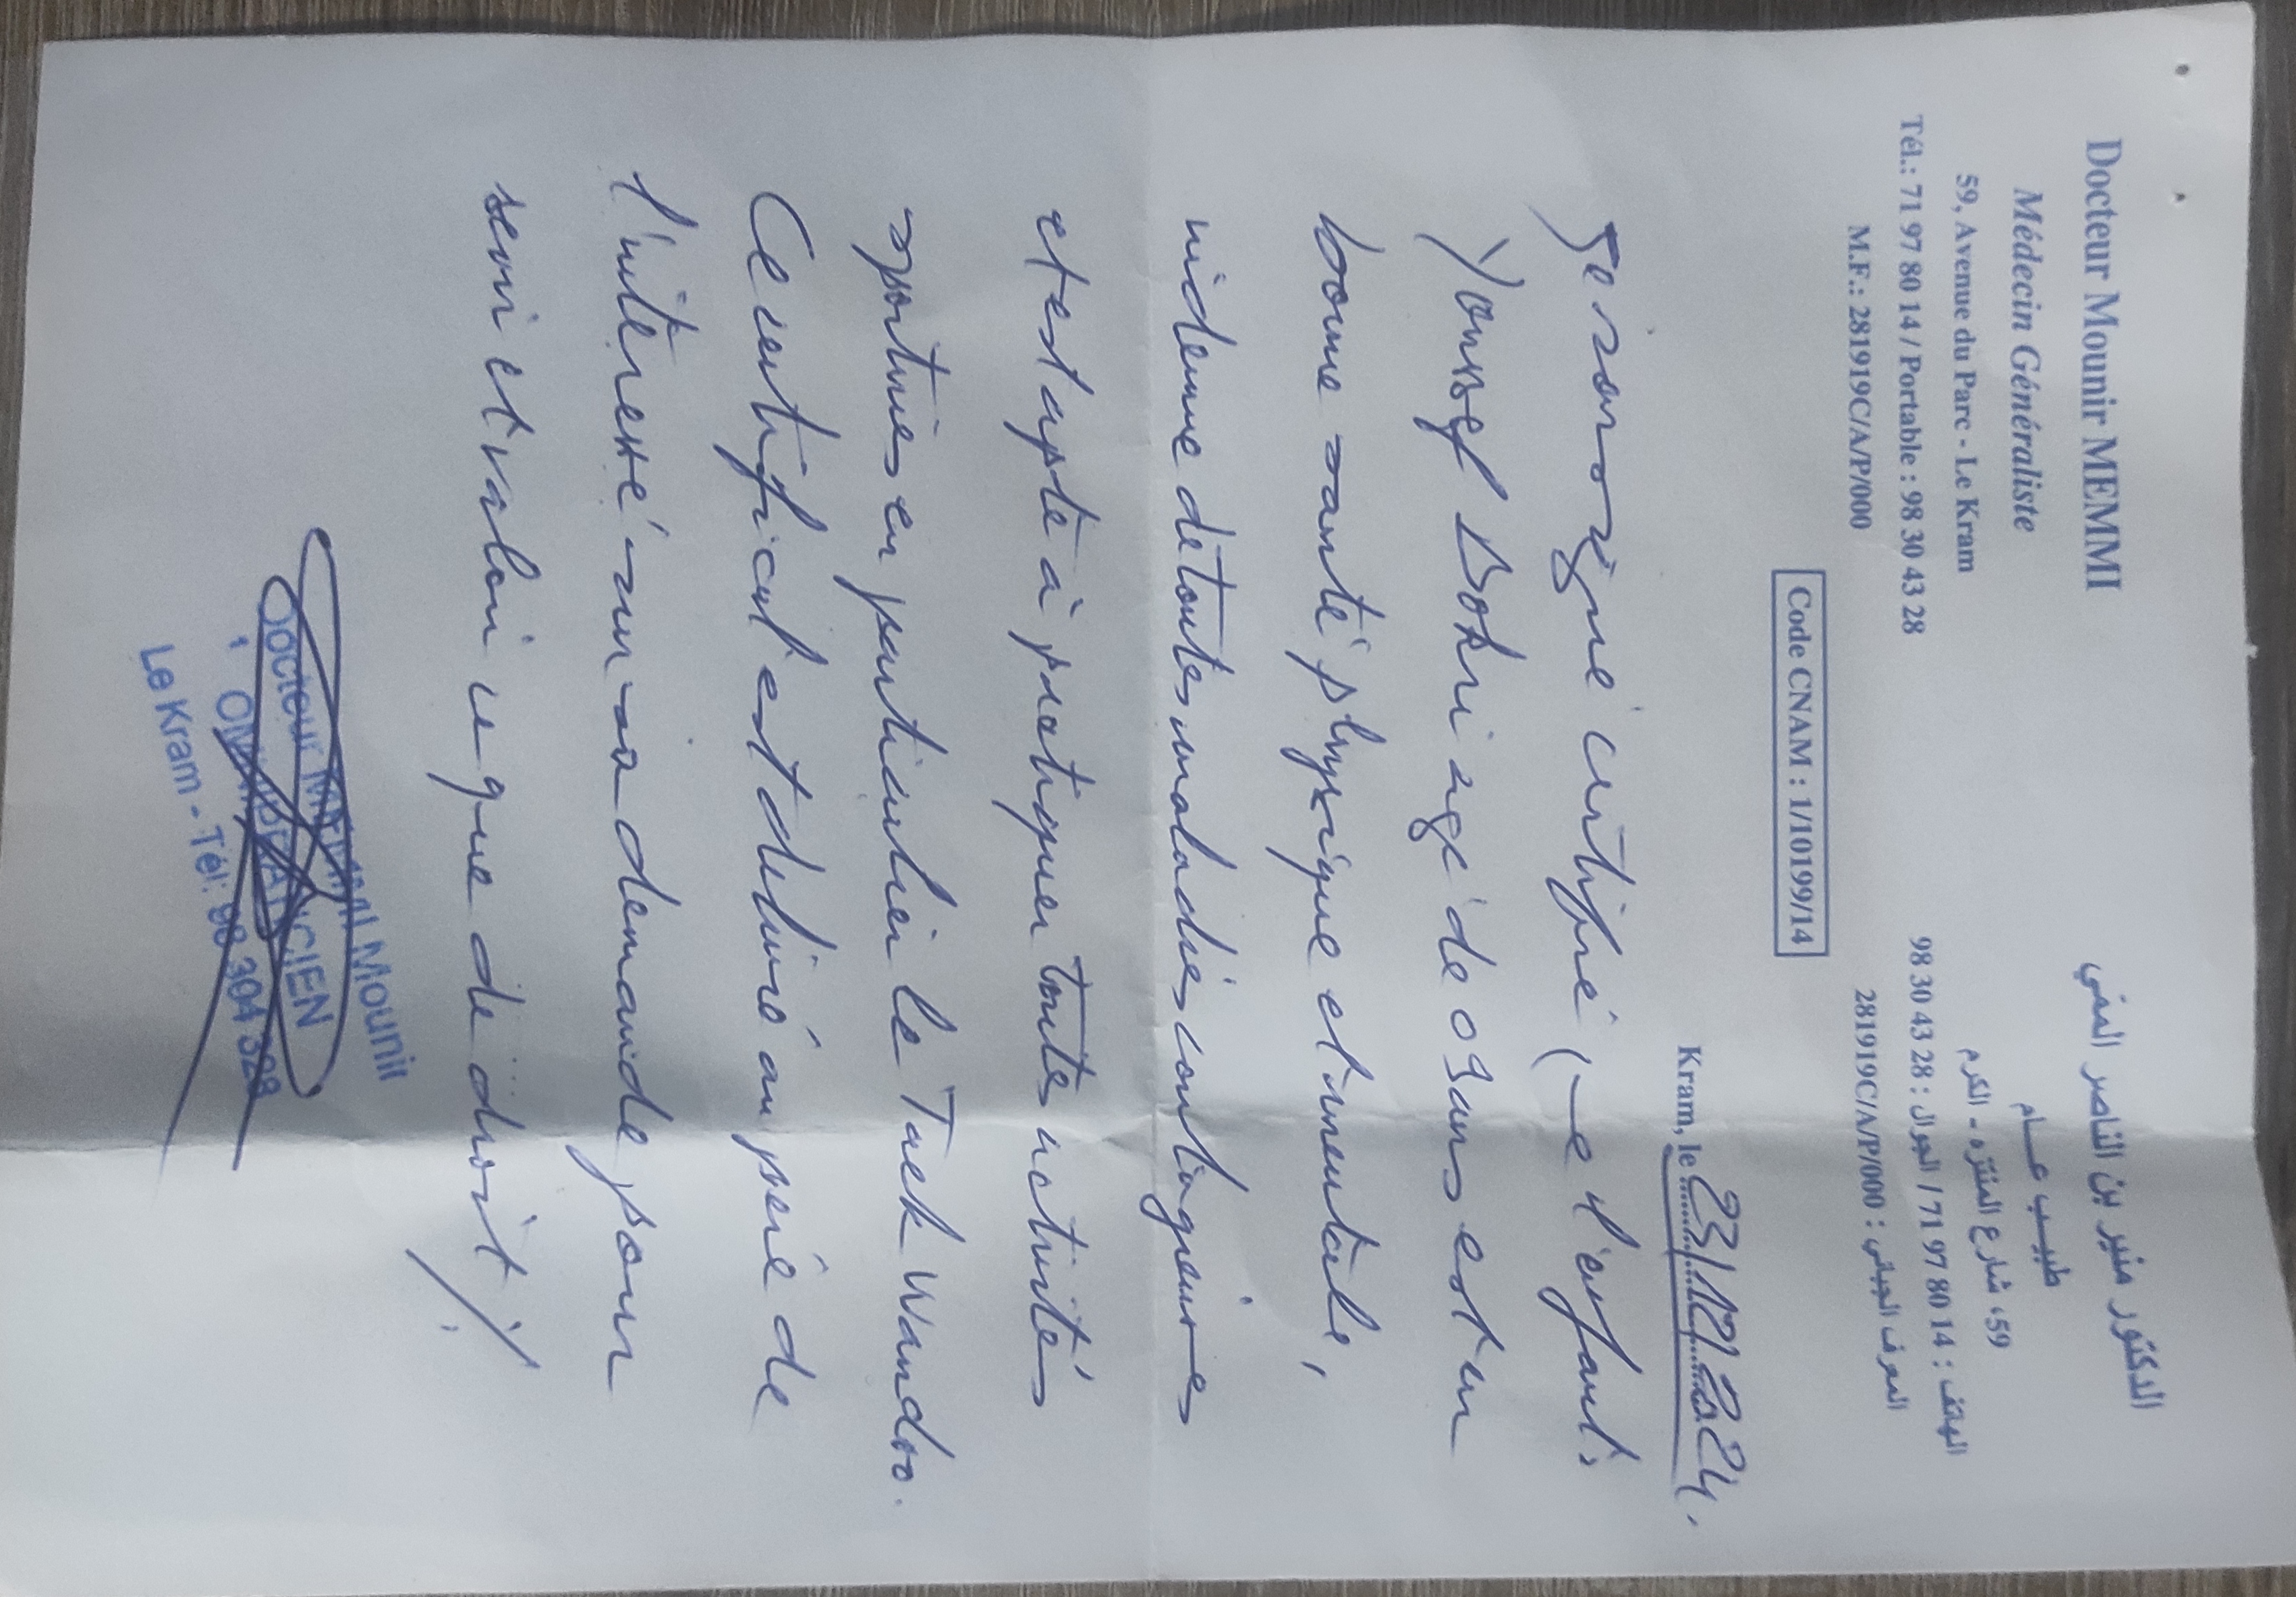 Docteur Mounir MEMMI
Médecin Généraliste
59, Avenue du Parc - Le Kram
Tél.: 71 97 80 14 / Portable : 98 30 43 28
M.F.: 281919C/A/P/000
الدكتور منير بن الناصر الممي
طبيب عام
59، شارع المنتزه - الكرم
الهاتف : 14 80 97 71 / الجوال : 28 43 30 98
المعرف الجبائي : 281919C/A/P/000
Code CNAM : 1/10199/14
Kram, le 23/12/2024.
Je soussigné certifie que l'enfant:
Youssef Dokhri agé de 09 ans est en
bonne santé physique et mentale,
indemne de toutes maladies contagieuses
et est apte à pratiquer toutes activités
sportives en particulier le Taek Wandoo.
Ce certificat est délivré au père de
l'intéressé sur sa demande pour
servir et valoir ce que de droit /.
Docteur MEMMI Mounir
OMNIPRATICIEN
Le Kram - Tél: 98 304 328